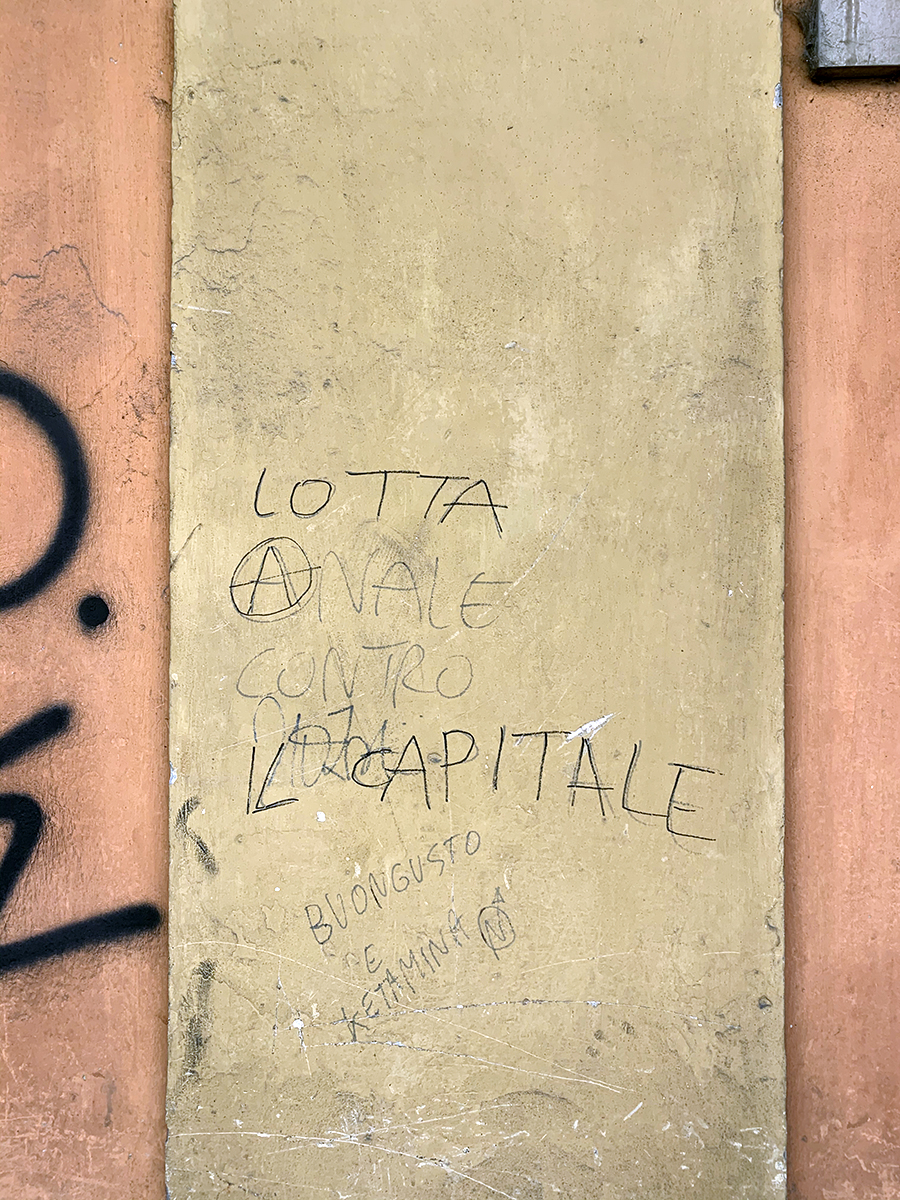 LOTTA
ANALE
CONTRO
IL CAPITALE
BUONGUSTO
E
KETAMINA N